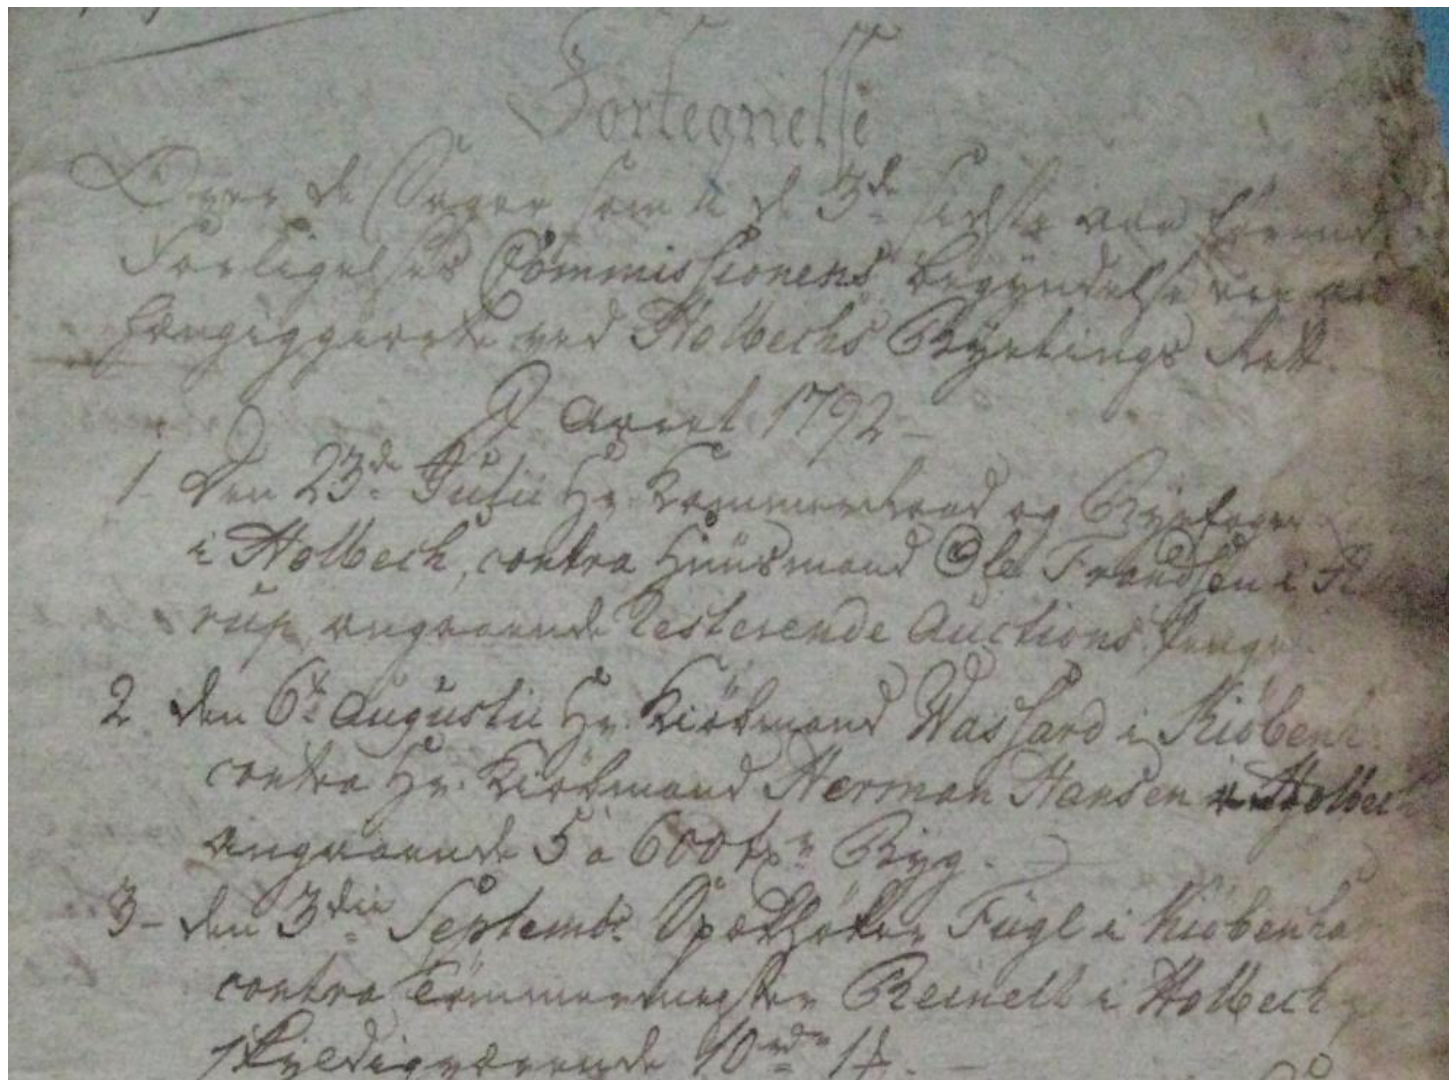 Fortegnelse
Over de Sager som i de 3de sidste aar førend
Forligelses Commissionens begyndelse ere an
hængiggiorte ved Holbechs Byetings Rett
I Aaret 1792
1 Den 23de Julii Hr. Kammerraad og Byefoged
i Holbech, contra Huusmand Ole Frandsen i
rup angaaende Resterende Auctions penge
2 den 6te Augustii Hr. Kiøbmand Wassard i Kiøbenh.
contra Hr. Kiøbmand Herman Hansen i Holbech
angaaende 5 a 600 tdr Byg.
3 - den 3die Septembr. Apotheker Fugl i Kiøbenha
contra Tømmermester Reinelt i Holbech
skyldigværende 10 rdr 1 ß. -